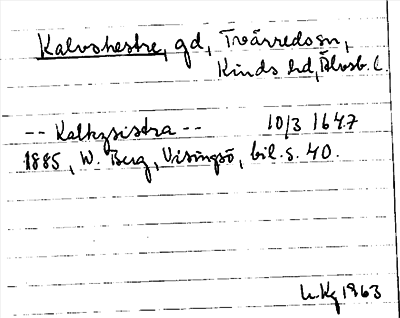 Kalvshestre, gd, Tvärredssn,
Kinds hd, Älvsb. l.
-- Kalhysistra -- 10/3 1647
1885, W. Berg, Visingsö, bil. s. 40.
1963